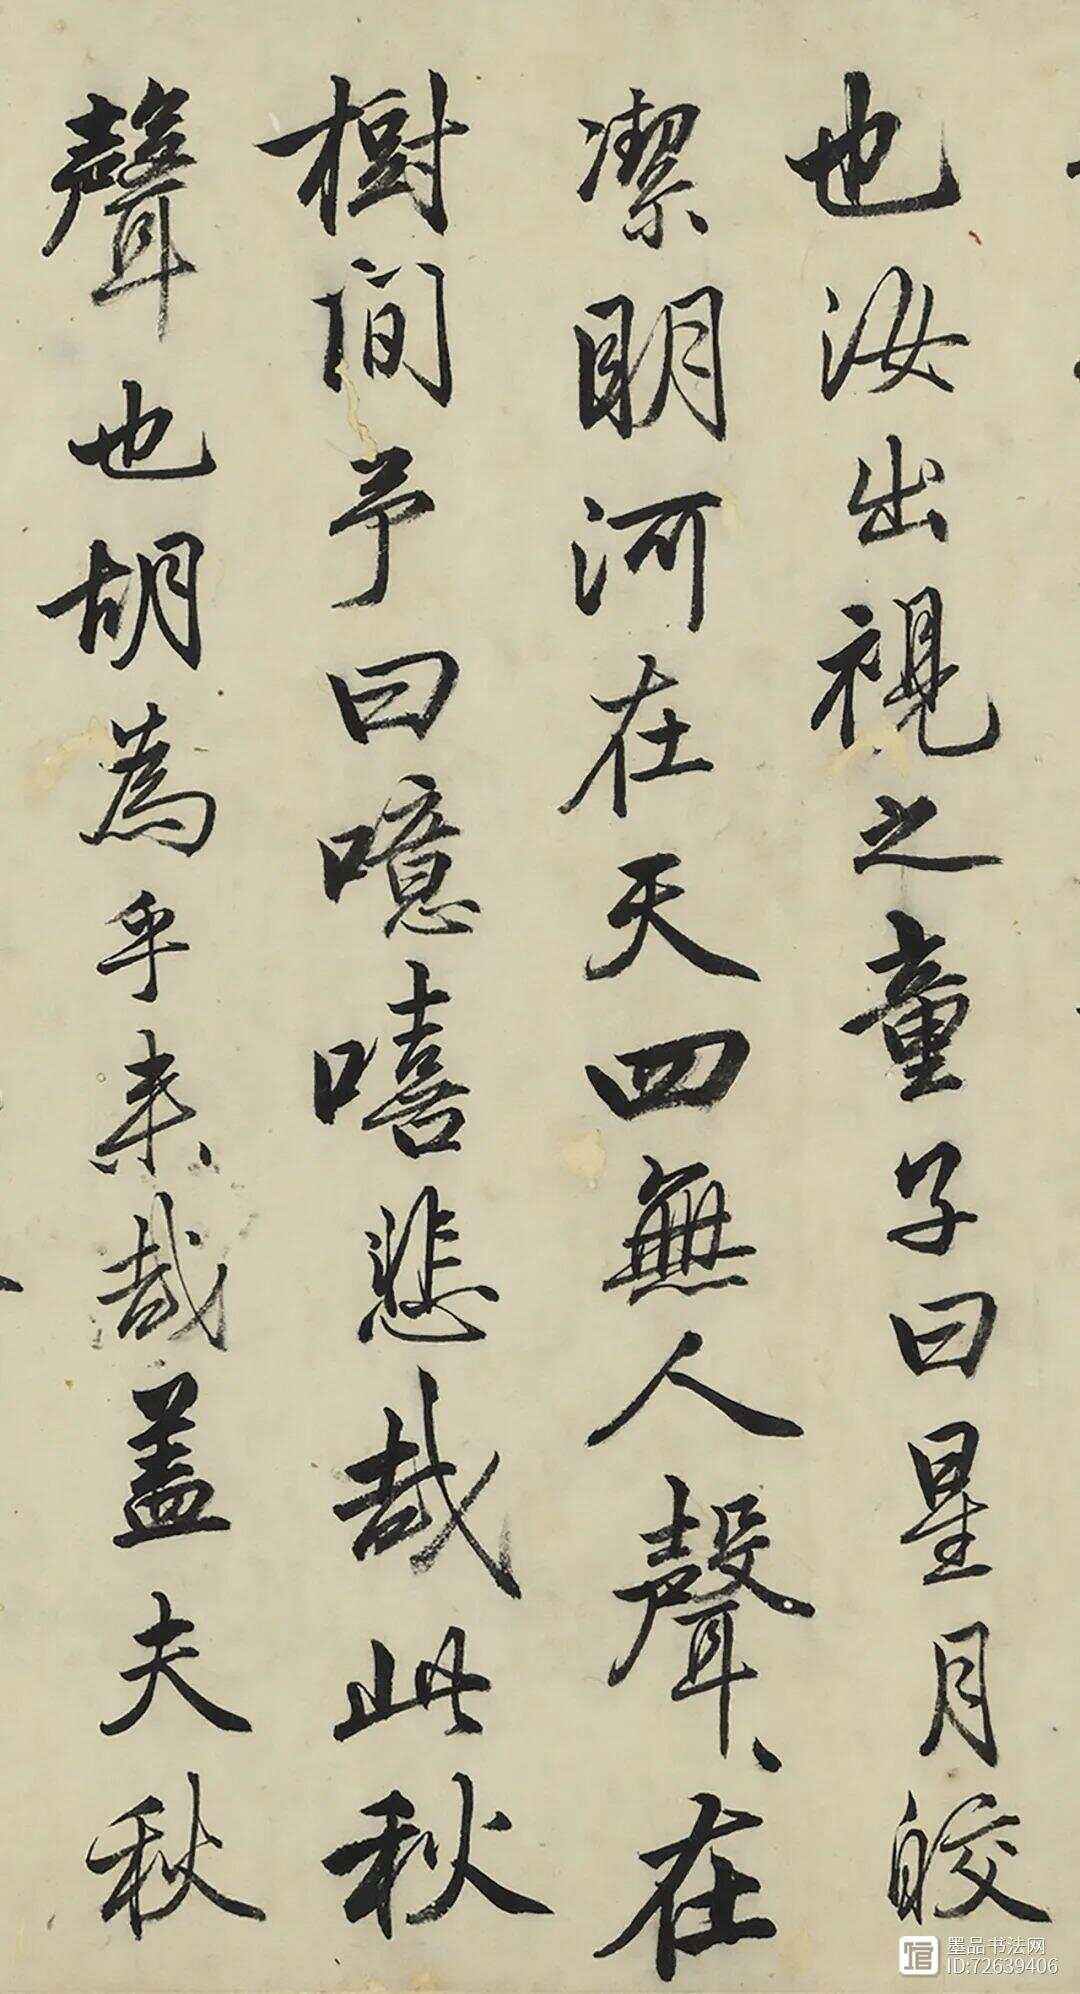 也汝出視之童子曰星月皎
潔明河在天四無人聲聲在
樹間予曰噫嘻悲哉此秋
聲也胡為乎來哉蓋夫秋
墨品书法网
ID:72639406